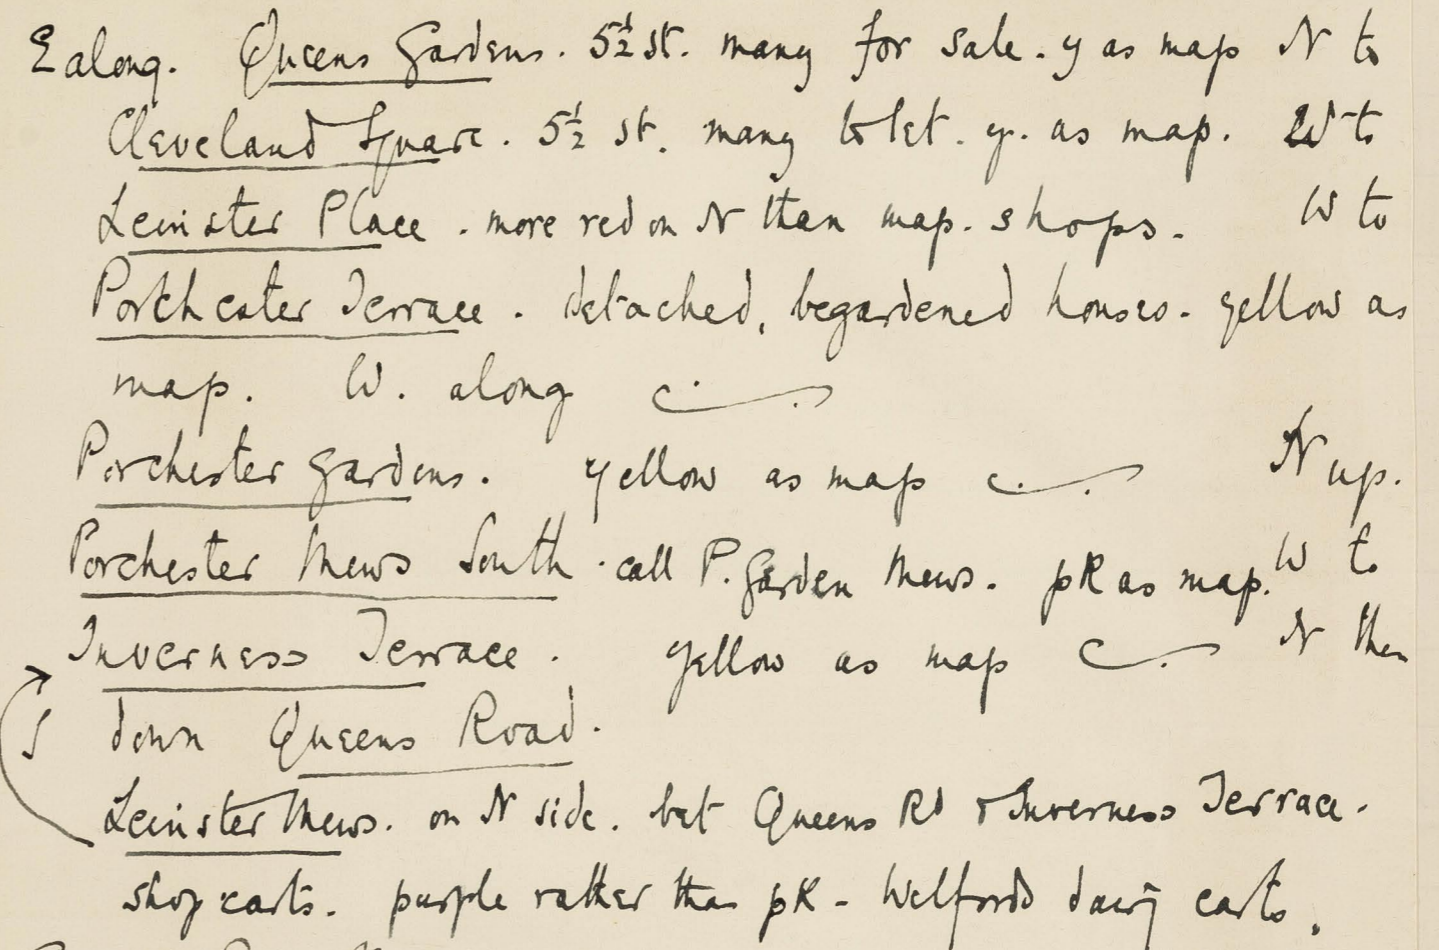 E along. Queens Gardens. 5½ st. many for sale. y as map N to
Cleveland Square. 5½ st. many to let. y. as map. W to
Leinster Place. more red on N than map. shops. W to
Porchester Terrace. detached, begardened houses. yellow as
map. W. along
Porchester Gardens. yellow as map N up.
Porchester Mews South. call P. Garden Mews. pk as map. W to
Inverness Terrace. yellow as map N then
S down Queens Road.
Leinster Mews. on N side. bet Queens Rd & Inverness Terrace.
shop carts. purple rather than pk - Welfords dairy carts.